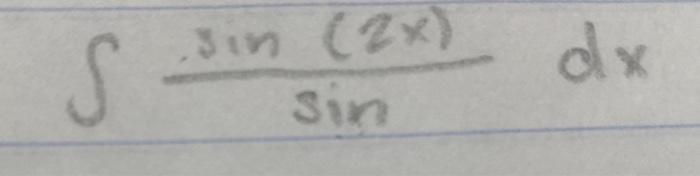 ∫ sin (2x) / sin dx